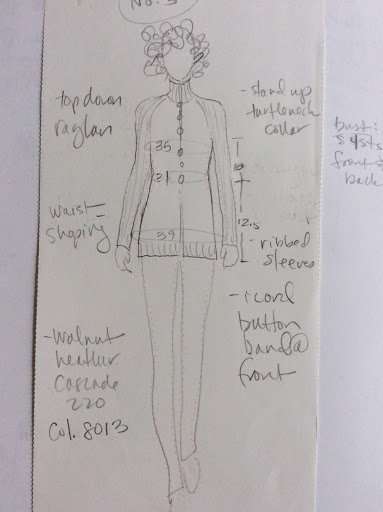 No. 5
top down
raglan
- stand up
turtleneck
collar
35
10
31
12.5
39
waist
shaping
- ribbed
sleeves
- icord
button
band @
front
- walnut
heather
cascade
220
Col. 8013
bust:
front &
back